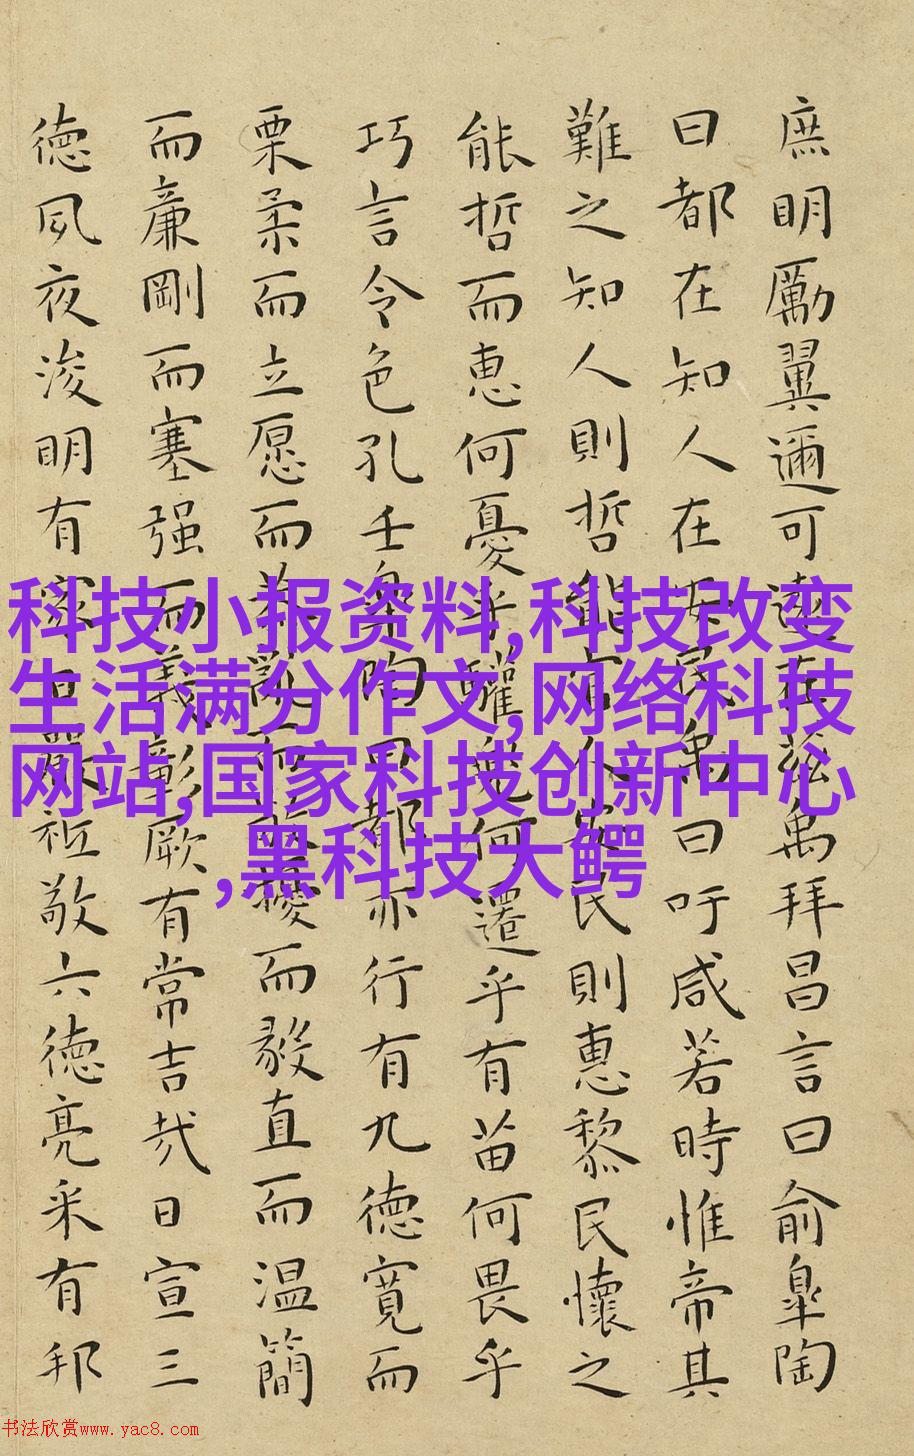 庶明勵翼邇可遠在茲禹拜昌言曰俞皐陶
曰都在知人在安民禹曰吁咸若時惟帝其
難之知人則哲能官人安民則惠黎民懷之
能哲而惠何憂乎驩兜何遷乎有苗何畏乎
巧言令色孔壬皐陶曰都亦行有九德寬而
栗柔而立愿而恭亂而敬擾而毅直而温簡
而廉剛而塞强而義彰厥有常吉哉日宣三
德夙夜浚明有家日嚴祗敬六德亮采有邦
科技小报资料,科技改变
生活满分作文,网络科技
网站,国家科技创新中心
,黑科技大鳄
书法欣赏www.yac8.com